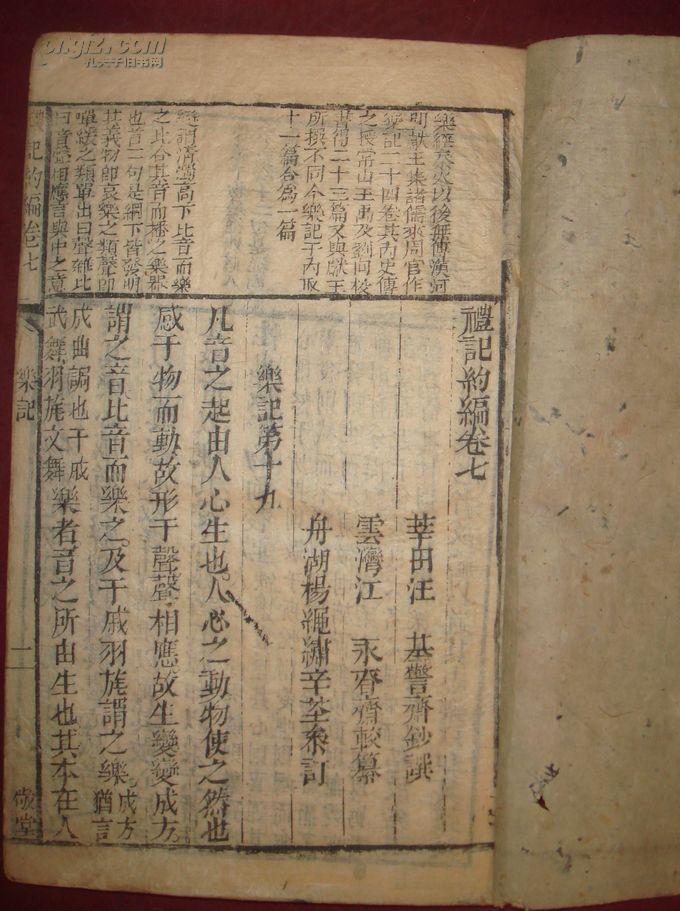 kongfz.com
孔夫子旧书网
禮記約編卷七
莘田汪 基警齋鈔撰
雲灣江 永昚齋較纂
舟湖楊繩繡辛荃叅訂
樂記第十九
凡音之起由人心生也人心之動物使之然也
感于物而動故形于聲聲相應故生變變成方
謂之音比音而樂之及干戚羽旄謂之樂成方猶言
成曲調也干戚武舞羽旄文舞樂者音之所由生也其本在人
樂經秦火以後無傳漢河
獻王集諸儒來周官作
樂記二十四卷其內史傳
之長常山王禹及劉向校
書得二十三篇又與獻王
所撰不同今樂記于內取
十一篇合為一篇
樂謂清濁高下比音而樂
之比合其音而播之樂器
也首二句是綱下皆發明
其義物即哀樂之類聲即
嘽緩之類單出曰聲雜比
曰音應相應言與中之意
樂記約編卷七
樂記
二
敬堂